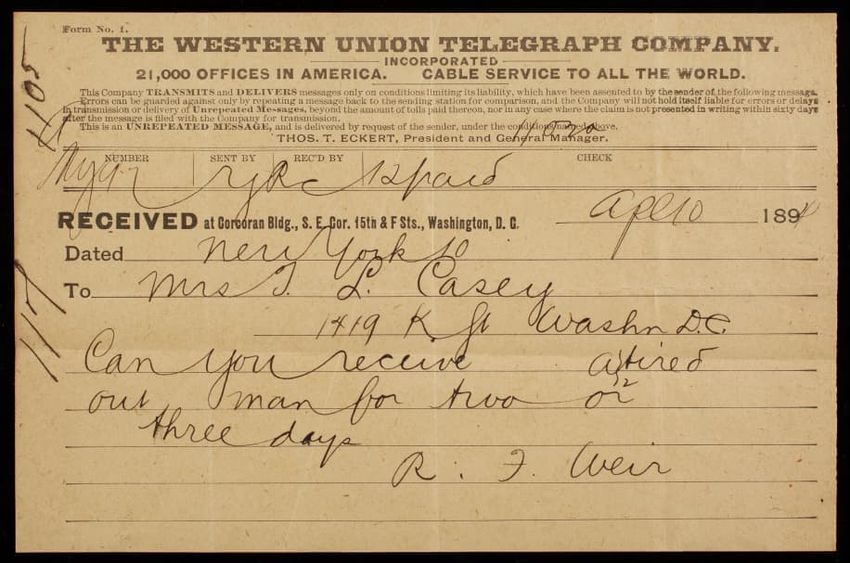 Form No. 1.
THE WESTERN UNION TELEGRAPH COMPANY.
INCORPORATED
21,000 OFFICES IN AMERICA. CABLE SERVICE TO ALL THE WORLD.
This Company TRANSMITS and DELIVERS messages only on conditions limiting its liability, which have been assented to by the sender of the following message.
Errors can be guarded against only by repeating a message back to the sending station for comparison, and the Company will not hold itself liable for errors or delays
in transmission or delivery of Unrepeated Messages, beyond the amount of tolls paid thereon, nor in any case where the claim is not presented in writing within sixty days
after the message is filed with the Company for transmission.
This is an UNREPEATED MESSAGE, and is delivered by request of the sender, under the conditions named above.
THOS. T. ECKERT, President and General Manager.
1105
NUMBER SENT BY REC'D BY CHECK
paid
RECEIVED at Corcoran Bldg., S. E. Cor. 15th & F Sts., Washington, D. C. Apl 10 189
Dated New York 10
To Mrs T. L. Casey
117
1419 K St Washn D.C.
Can you receive a tired
out man for two or
three days
R. F. Weir